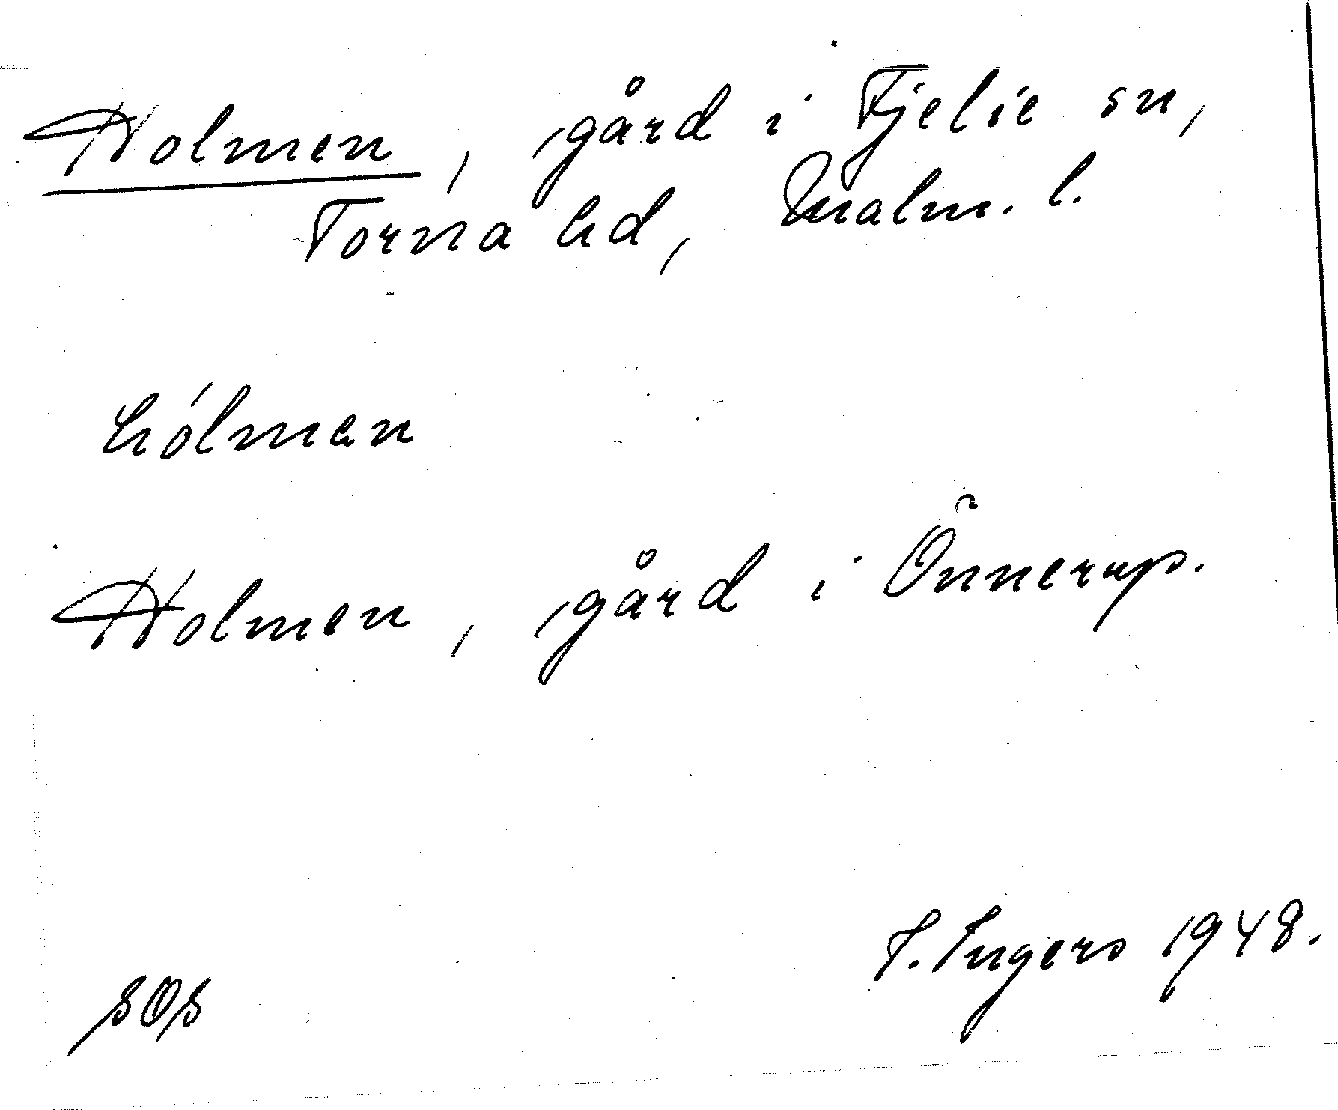 Holmen, gård i Fjelie sn,
Torna hd, Malm. l.
hólmen
Holmen, gård i Önnerup.
I. Ingers 1948.
SOS